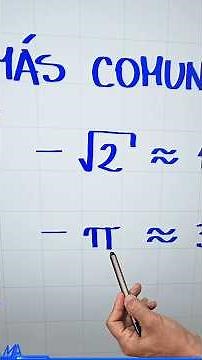 MÁS COMUN
– √2 ≈
– π ≈ 3